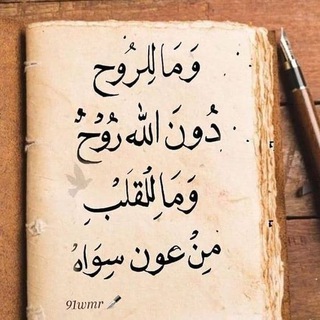 وَمَا لِلرُوح
دُونَ الله رُوْحٌ
وَمَا لِلْقَلبْ
مِنْ عون سِوَاهُ
91wmr